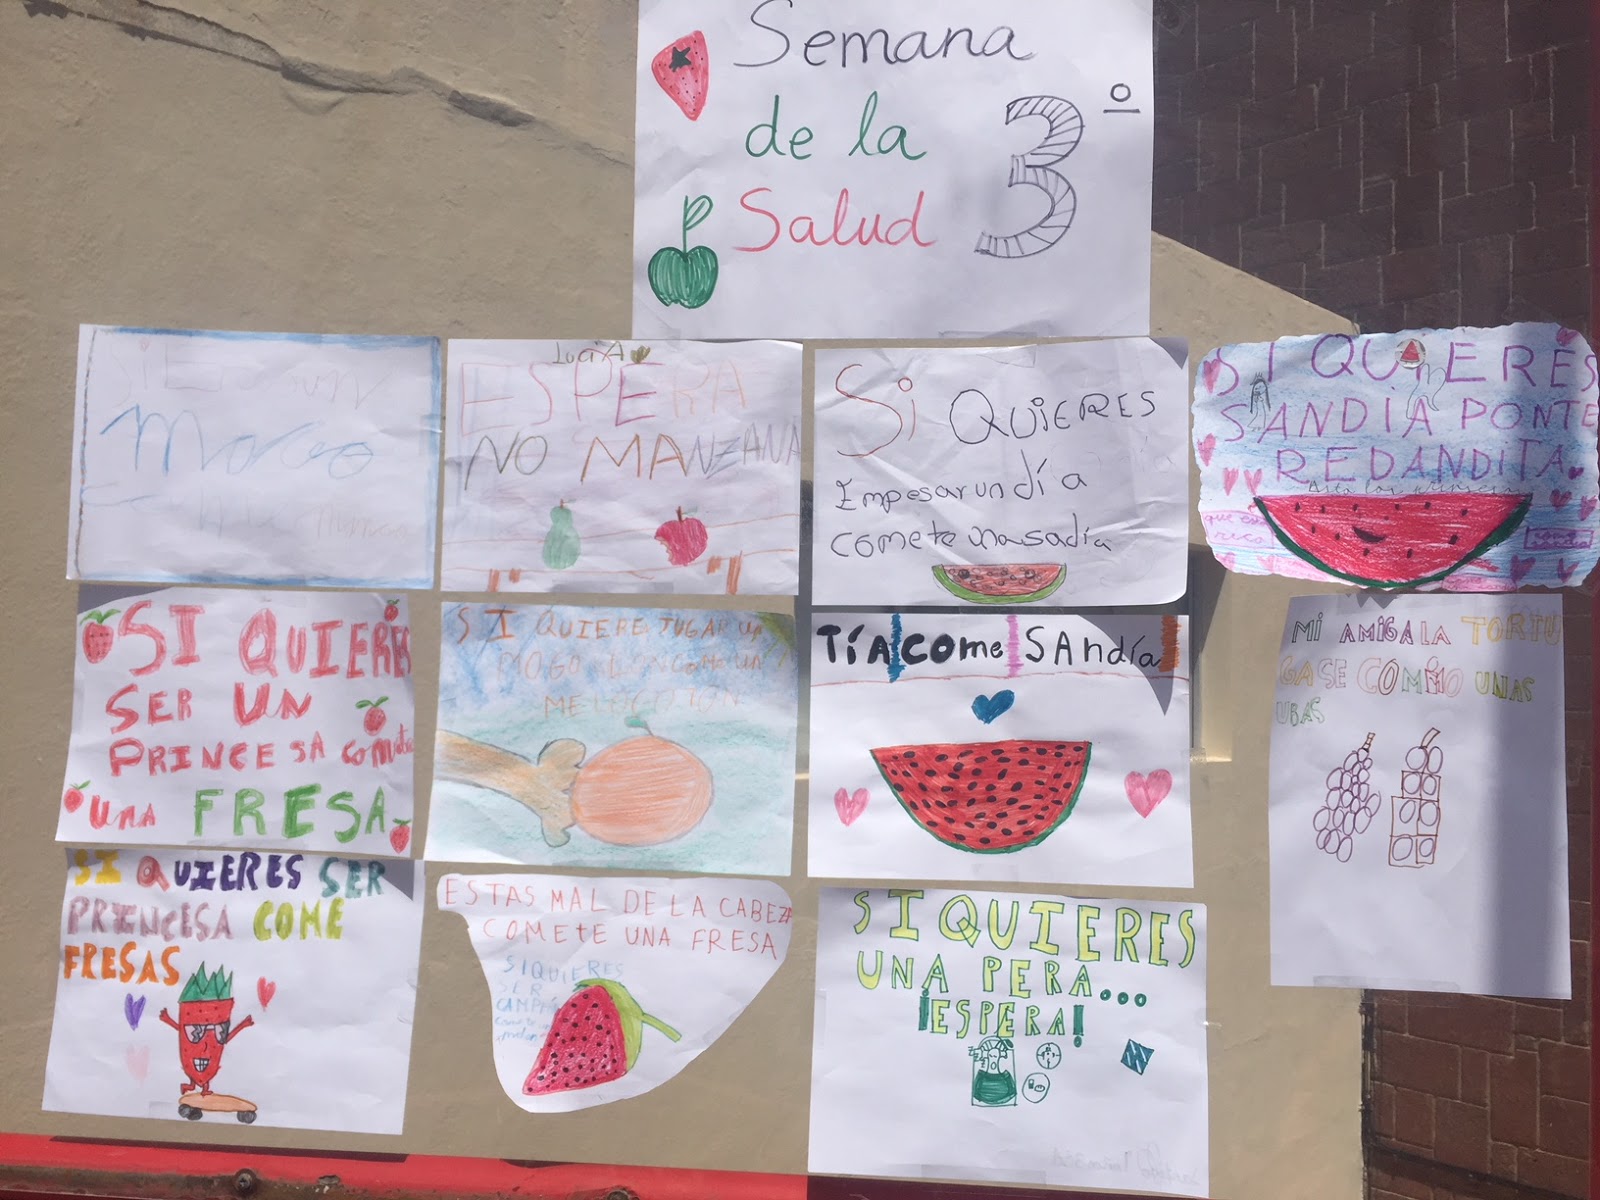 Semana
de la
Salud
3º
Marco
LucíA
ESPERA
NO MANZANA
Si QUiERES
Empesar un día
comete una sadía
SI QUIERES
SANDIA PONTE
REDANDITA
que est
rico
SI QUIERES
SER UN
PRINCESA comete
UNA FRESA
SI QUIERE JUGAR UN
MELOCOTON
TíA COme SAndía
Mi AMIGA LA TORTU
GA SE COMIO UNAS
UBAS
SI QUIERES SER
PRINCESA COME
FRESAS
ESTAS MAL DE LA CABEZA
COMETE UNA FRESA
SI QUIERES
SER
comete un
melon
SI QUIERES
UNA PERA...
¡ESPERA!